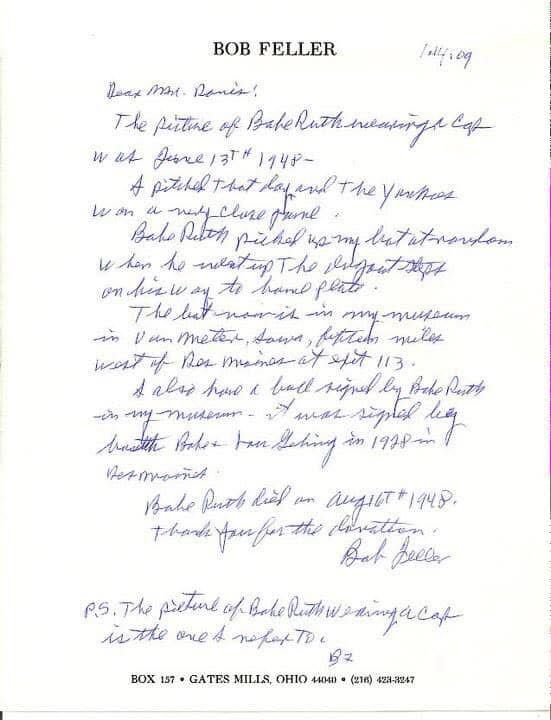 BOB FELLER
1.14.09
Dear Mr. Danis!
The picture of Babe Ruth wearing a Cap
was June 13TH 1948-
I pitched that day and the Yankees
won a very close game.
Babe Ruth picked up my bat at random
when he went up The dugout steps
on his way to home plate.
The bat now is in my museum
in Van Meter, Iowa, fifteen miles
west of Des Moines at exit 113.
I also have a ball signed by Babe Ruth
in my museum - it was signed by
Babe & Lou Gehrig in 1928 in
Des Moines.
Babe Ruth died on Aug 16TH 1948.
Thank you for the donation.
Bob Feller
P.S. The picture of Babe Ruth wearing a Cap
is the one I refer To.
BF
BOX 157 • GATES MILLS, OHIO 44040 • (216) 423-3247